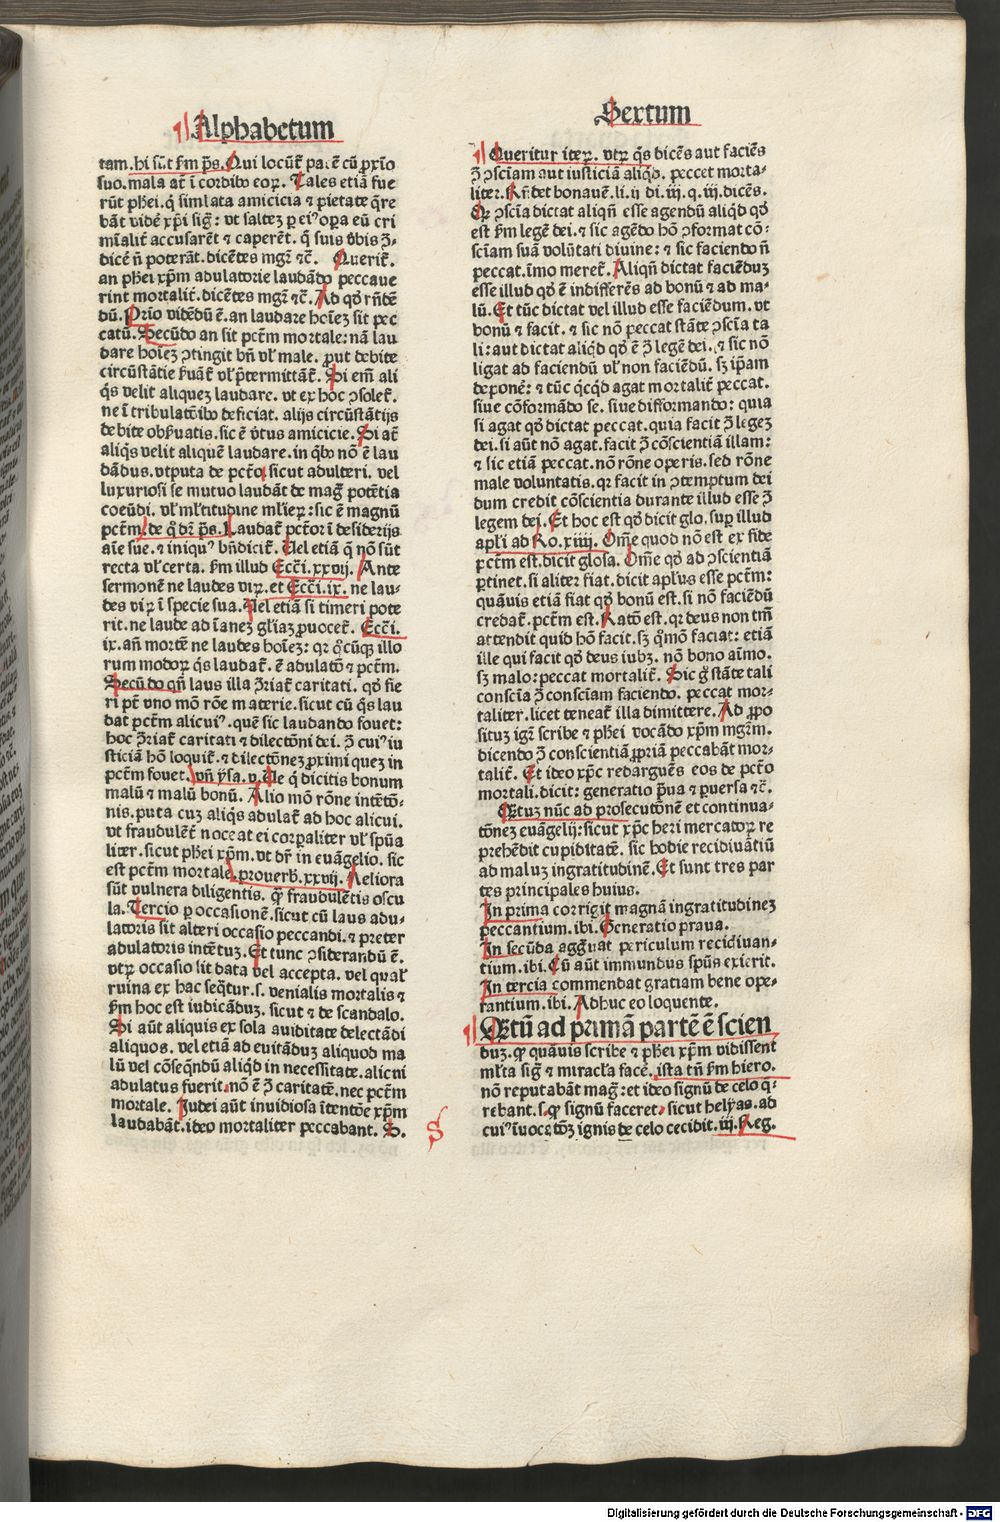 Alphabetum
Sextum
tam. hi sūt ẜm p̄s. Qui locūt᷑ pa. ē cū ꝓxīo
suo. mala at̄ ī cordibꝰ eoꝝ. Tales etiā fue
rūt phei. q̄ simlata amicicia ⁊ pietate q̄re
bāt vidē xp̄i sig̃: vt saltez ꝑ eiꝰ oꝑa eū cri
mīalit᷑ accusarēt ⁊ caperēt. q̄ suis v̄bis ꝯ̄-
dicē n̄ poterāt. dicētes mgr̄ ⁊c̄. Querit᷑.
an phei xp̄m adulatorie laudādo peccaue
rint mortalit᷑. dicētes mgr̄ ⁊c̄. Ad qđ rn̄dē
dū. Prīo vidēdū ē. an laudare hoīez sit pec
catū. Secūdo an sit pct̄m mortale: nā lau
dare hoīez ꝯtingit bn̄ vl̕ male. ꝓut debite
circūstātie ẜuāt᷑ vl̕ p̄termittāt᷑. Si em̄ ali
q̄s velit aliquez laudare. vt ex hoc ꝯsolet᷑.
ne ī tribulatōibꝰ deficiat. alijs circūstātijs
debite obẜuatis. sic ē v̄tus amicicie. Si at̄
aliq̄s velit aliquē laudare. in qͥbꝰ nō ē lau
dādus. vtputa de pct̄o, sicut adulteri. vel
luxuriosi se mutuo laudāt de mag̃ potētia
coeūdi. vl̕ ml̕titudine ml̕ieꝝ: sic ē magnū
pct̄m. de q̊ dr̄ p̄s. Laudat᷑ pct̄or ī desiderijs
aīe sue. ⁊ iniquꝰ bn̄dicit᷑. Vel etiā q̄ nō sūt
recta vl̕ certa. ẜm illud Ecc̄i. xxvij. Ante
sermonē ne laudes viꝝ. et Ecc̄i. ix. ne lau-
des viꝝ ī specie sua. Vel etiā si timeri pote
rit. ne laude ad īanez gl̕iaz ꝓuocet᷑. Ecc̄i.
ix. an̄ mortē ne laudes hoīez: qꝛ q̊cūqꝫ illo
rum modoꝝ q̄s laudat᷑. ē adulatō ⁊ pct̄m.
Secūdo qn̄ laus illa ꝯ̄riat᷑ caritati. qđ fie
ri pt̄ vno mō rōe materie. sicut cū q̄s lau
dat pct̄m alicuiꝰ. quē sic laudando fouet:
hoc ꝯ̄riat᷑ caritati ⁊ dilectōni dei. ꝯ̄ cuiꝰ iu
sticiā hō loquit᷑. ⁊ dilectōnez ꝓximi quez in
pct̄m fouet. vn̄ ysa. v. Ve q̄ dicitis bonum
malū ⁊ malū bonū. Alio mō rōne intētō-
nis. puta cuz aliq̄s adulat᷑ ad hoc alicui.
vt fraudulēt᷑ noceat ei corꝑaliter vl̕ sp̄ua
liter. sicut phei xp̄m. vt dr̄ in euāgelio. sic
est pct̄m mortale. ꝓuerb. xxvij. Meliora
sūt vulnera diligentis. qͣ̄ fraudulētis oscu
la. Tercio ꝑ occasionē. sicut cū laus adu-
latoris sit alteri occasio peccandi. ⁊ preter
adulatoris intētuz. Et tunc ꝯsiderandū ē.
vtꝝ occasio sit data vel accepta. vel qual̕
ruina ex hac seq̄tur. s. venialis mortalis ⁊
ẜm hoc est iudicāduz. sicut ⁊ de scandalo.
Si aūt aliquis ex sola auiditate delectādi
aliquos. vel etiā ad euitāduz aliquod ma
lū vel cōseq̄ndū aliqd in necessitate. alicui
adulatus fuerit. nō ē ꝯ̄ caritatē. nec pct̄m
mortale. Judei aūt inuidiosa ītentōe xp̄m
laudabāt. ideo mortaliter peccabant. S.
S
Queritur iteꝝ. vtꝝ q̄s dicēs aut faciēs
ꝯ̄ ꝯsciam aut iusticiā aliqđ. peccet morta-
liter. Rn̄det bonauē. li. ij di. iij. q. iij. dicēs.
Qꝛ ꝯscīa dictat aliqn̄ esse agendū aliqđ qđ
est ẜm legē dei. ⁊ sic agēdo hō ꝯformat cō-
scīam suā volūtati diuine: ⁊ sic faciendo n̄
peccat. īmo meret᷑. Aliqn̄ dictat faciēduz
esse illud qđ ē indifferēs ad bonū ⁊ ad ma-
lū. Et tūc dictat vel illud esse faciēdum. vt
bonū ⁊ facit. ⁊ sic nō peccat stāte ꝯscīa ta
li: aut dictat aliqd qđ ē ꝯ̄ legē dei. ⁊ sic nō
ligat ad faciendū vl̕ non faciēdū. sꝫ ip̄am
deponē: ⁊ tūc qͥcqͥd agat mortalit᷑ peccat.
siue cōformādo se. siue difformando: quia
si agat qđ dictat peccat. quia facit ꝯ̄ legez
dei. si aūt nō agat. facit ꝯ̄ cōscientiā illam:
⁊ sic etiā peccat. nō rōne operis. sed rōne
male voluntatis. qꝛ facit in ꝯtemptum dei
dum credit cōscientia durante illud esse ꝯ̄
legem dei. Et hoc est qđ dicit glo. suꝑ illud
apl̕i ad Ro. xiiij. Om̄e quod nō est ex fide
pct̄m est. dicit glosa. Om̄e qđ ad ꝯscientiā
ꝑtinet. si aliter fiat. dicit apl̕us esse pct̄m:
quāuis etiā fiat qđ bonū est. si nō faciēdū
credat᷑. pct̄m est. Ratō est. qꝛ deus non tm̄
attendit quid hō facit. sꝫ q̊mō faciat: etiā
ille qui facit qđ deus iubꝫ. nō bono aīmo.
sꝫ malo: peccat mortalit᷑. Sic g̊ stāte tali
conscīa ꝯ̄ conscīam faciendo. peccat mor-
taliter. licet teneat᷑ illa dimittere. Ad ꝓpo
situz igr̄ scribe ⁊ phei vocādo xp̄m mgr̄m.
dicendo ꝯ̄ conscientiā ꝓpriā peccabāt mor-
talit᷑. Et ideo xp̄c redarguēs eos de pct̄o
mortali. dicit: generatio p̄ua ⁊ ꝑuersa ⁊c̄.
Qꝛtuz nūc ad prosecutōnē et continua-
tōnez euāgelij: sicut xp̄c heri mercatoꝝ re
prehēdit cupiditatē. sic hodie recidiuātiū
ad maluz ingratitudinē. Et sunt tres par
tes principales huius.
In prima corrigit magnā ingratitudinez
peccantium. ibi. Generatio praua.
In secūda agg̃uat periculum recidiuan-
tium. ibi. Cū aūt immundus sp̄us exierit.
In tercia commendat gratiam bene ope-
rantium. ibi. Adhuc eo loquente.
Qꝛtū ad primā partē ē scien
duz. qͣ̄ quāuis scribe ⁊ phei xp̄m vidissent
ml̕ta sig̃ ⁊ miracl̕a facē. ista tn̄ ẜm hiero.
nō reputabāt mag̃: et ideo signū de celo q̄-
rebant. s. qͣ̄ signū faceret. sicut helyas. ad
cuiꝰ īuocatōz ignis de celo cecidit. iij. Reg.
Digitalisierung gefördert durch die Deutsche Forschungsgemeinschaft - DFG